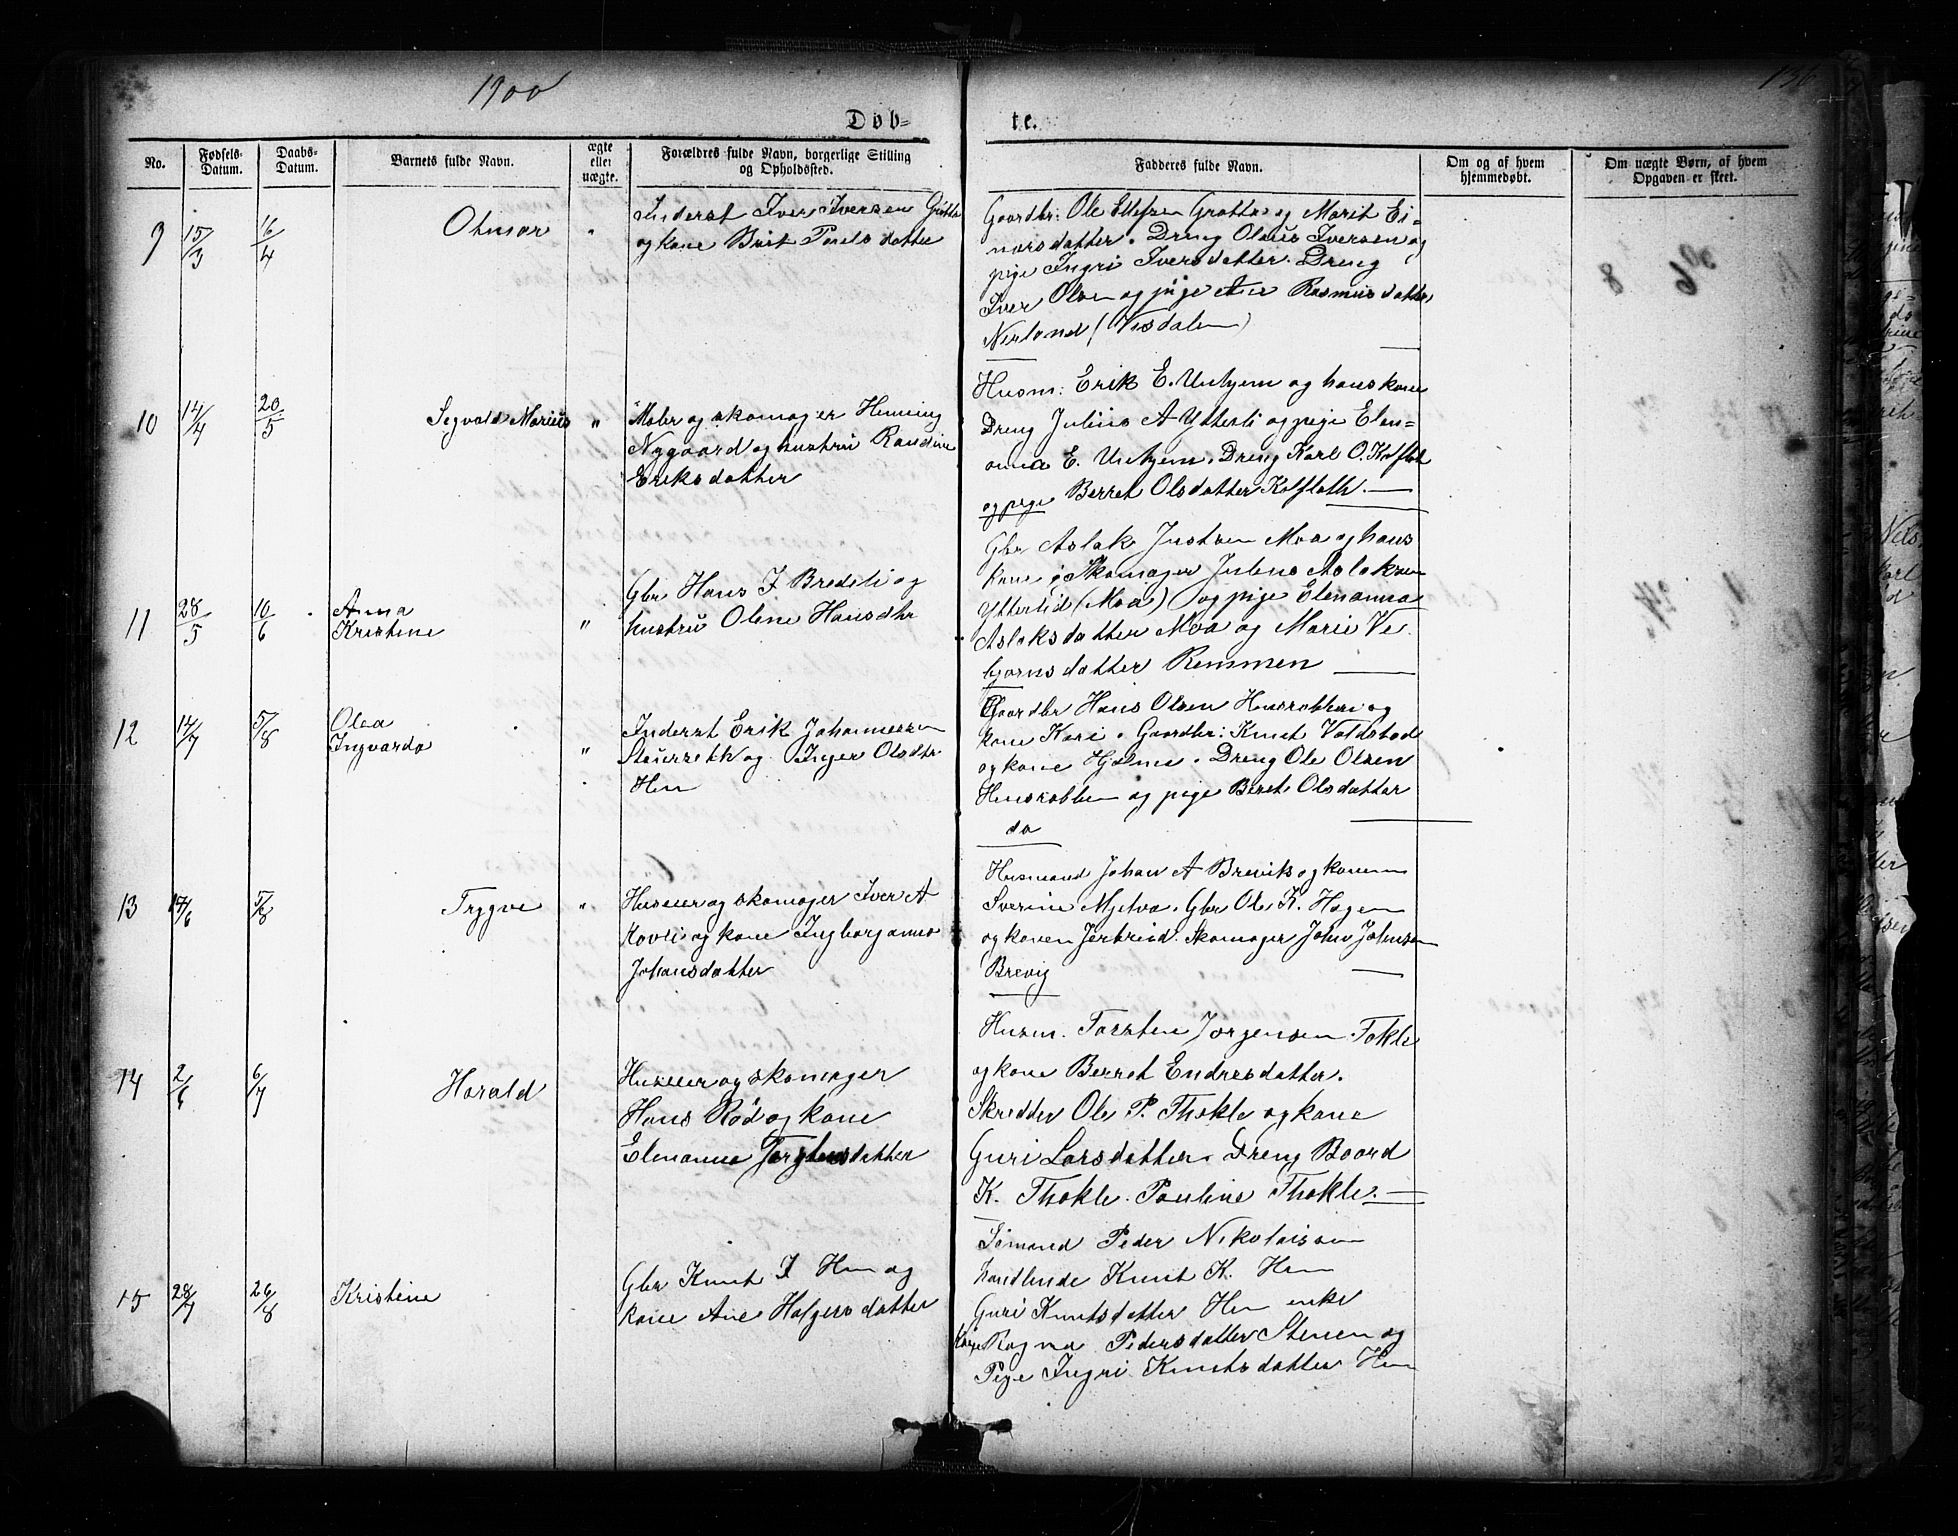 1900
136
Döb-
te.
No.
Fødsels-Datum.
Daabs-Datum.
Barnets fulde Navn.
ægte eller uægte.
Forældres fulde Navn, borgerlige Stilling og Opholdssted.
Fadderes fulde Navn.
Om og af hvem hjemmedøbt.
Om uægte Børn, af hvem Opgaven er skeet.
9
15/3
16/4
Otmar
"
Inderst Iver Iversen Grøtta
og kone Brit Pouls datter
Gaardbr: Ole Ellefsen Grøtta og Marit Ei=
narsdatter. Dreng Olaus Iversen og
pige Ingri Iversdatter. Dreng
Iver Olsen og pige Ane Rasmusdatter
Nerland (Visdalen)
10
14/4
20/5
Segvald Marius
"
Maler og skomager Henning
Nygaard og hustru Randine
Eriksdatter
Husm: Erik E. Unhjem og hans kone
Dreng Julius A Ytterli og pige Elen=
anna E. Unhjem. Dreng Karl O. Kolflot
og pige Berret Olsdatter Kolfloth.
11
28/5
10/6
Anna
Kristine
"
Gbr Hans J Bredeli og
hustru Oline Hansdtr
Gbr Aslak Justsen Moa og hans
kone, Skomager Julius Aslaksen
Ytterlid (Moa) og pige Elenanna
Aslaksdatter Moa og Marie Ve
bjørnsdatter Remmen
12
14/7
5/8
Olea
Ingvarda
"
Inderst Erik Johannessen
og Inger Olsdtr.
Hen
Gaardbr Hans Olsen Hensrabben og
kone Kari. Gaardbr: Knut Voldstad
og kone Hjalma. Dreng Ole Olsen
Hensrabben og pige Beret Olsdatter
do
13
14/6
5/8
Trygve
"
Huseier og skomager Iver A
Kavli og kone Ingborganna
Johansdatter
Husmand Johan A Brevik og konen
Sverine Mjelva. Gbr Ole K. Hagen
og konen Jertrud. Skomager John Johnsen
Brevig
14
2/6
6/7
Harald
Huseier og skomager
Hans Rød og kone
Elenanna Torstensdatter
Husm. Torsten Jørgensen Tokle
og kone Berret Endresdatter.
Skredder Ole P. Thokle og kone
Guri Larsdatter. Dreng Baard
K. Thokle. Pauline Thokle.
15
28/7
26/8
Kristine
Gbr Knut J Hen og
kone Ane Holgersdatter
Sømand Peder Nikolaisen
handlende Knut K. Hen
Guri Knutsdatter Hen enke
Kone Ragna Pedersdatter Stenen og
Pige Ingri Knutsdatter Hen